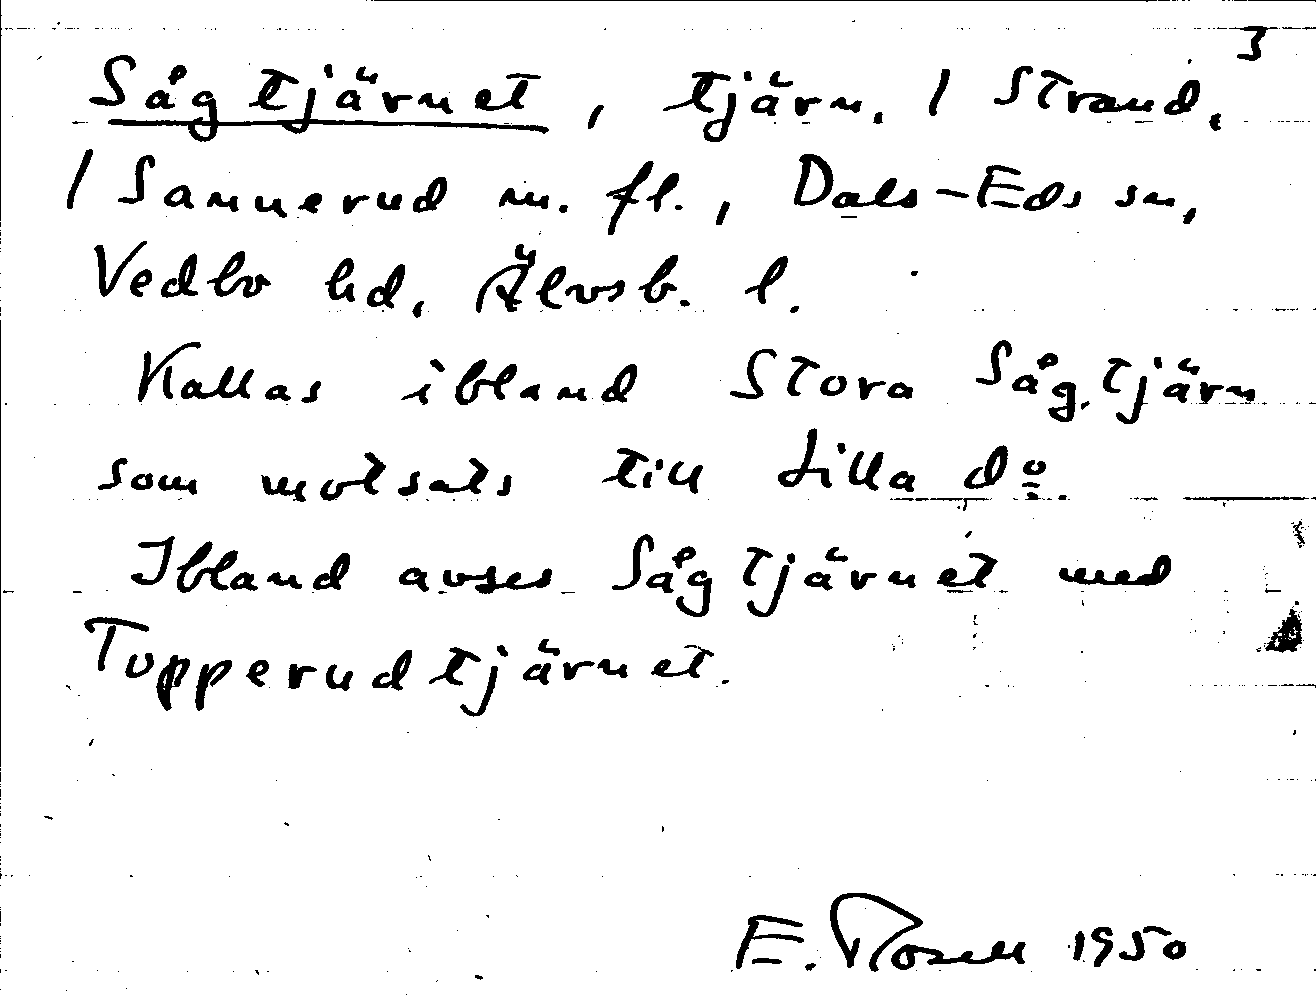 3
Sågtjärnet, tjärn, / Strand,
/ Sannerud m. fl., Dals-Eds sn,
Vedbo hd, Älvsb. l.
Kallas ibland Stora Sågtjärn
som motsats till Lilla dº.
Ibland avses Sågtjärnet med
Topperudtjärnet.
E. Rosell 1950